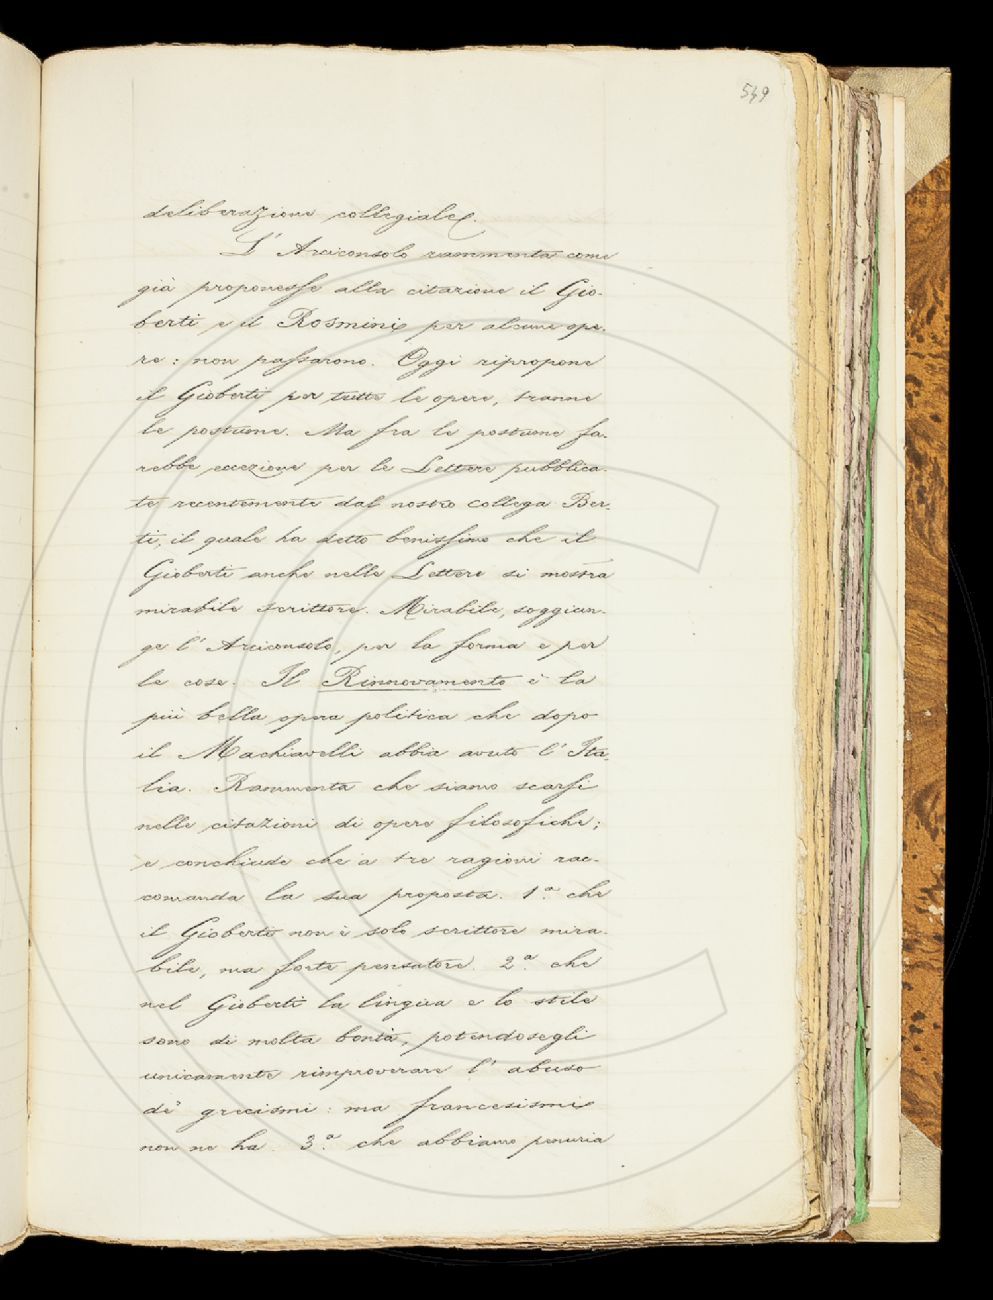 549
deliberazione collegiale.
L' Arciconsolo rammenta come
già proponesse alla citazione il Gio-
berti e il Rosmini per alcune ope-
re: non passarono. Oggi ripropone
il Gioberti per tutte le opere, tranne
le postume. Ma fra le postume fa-
rebbe eccezione per le Lettere pubblica-
te recentemente dal nostro collega Ber-
ti, il quale ha detto benissimo che il
Gioberti anche nelle Lettere si mostra
mirabile scrittore. Mirabile, soggiun-
ge l' Arciconsolo, per la forma e per
le cose. Il Rinnovamento è la
più bella opera politica che dopo
il Machiavelli abbia avuto l' Ita-
lia. Rammenta che siamo scarsi
nelle citazioni di opere filosofiche;
e conchiude che a tre ragioni rac-
comanda la sua proposta. 1.ª che
il Gioberti non è solo scrittore mira-
bile, ma forte pensatore. 2.ª che
nel Gioberti la lingua e lo stile
sono di molta bontà, potendosegli
unicamente rimproverare l' abuso
de' grecismi: ma francesismi
non ne ha. 3.ª che abbiamo penuria